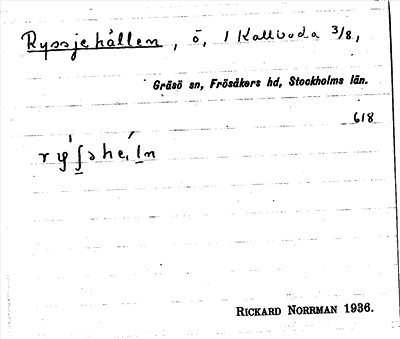 Ryssjehällen, ö, 1 Kallboda 3/8,
Gräsö sn, Frösåkers hd, Stockholms län.
618
RICKARD NORRMAN 1936.